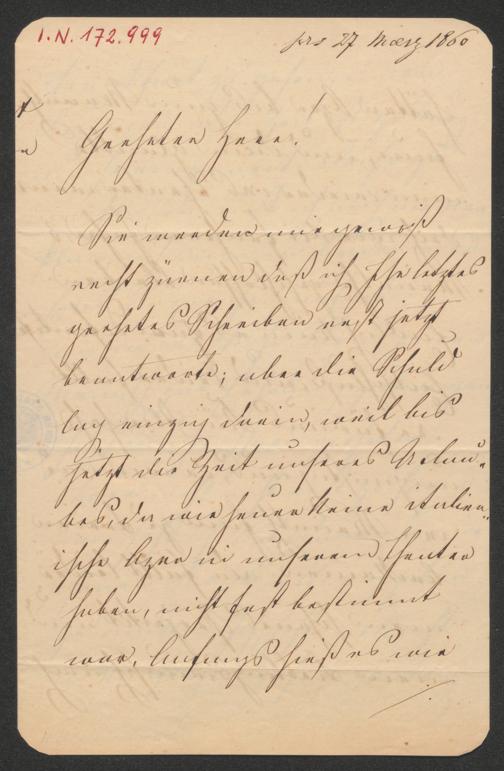 I.N. 172.999
prs 27 Maerz 1860
Geehrter Herr!
Sie werden mir gewiß
recht zürnen daß ich Ihr letztes
geehrtes Schreiben erst jetzt
beantworte; aber die Schuld
lag einzig darin, weil bis
jetzt die Zeit unseres Urlau-
bes, da wir heuer keine italien-
ische Oper in unserem Theater
haben, nicht fest bestimmt
war. Anfangs hieß es wir